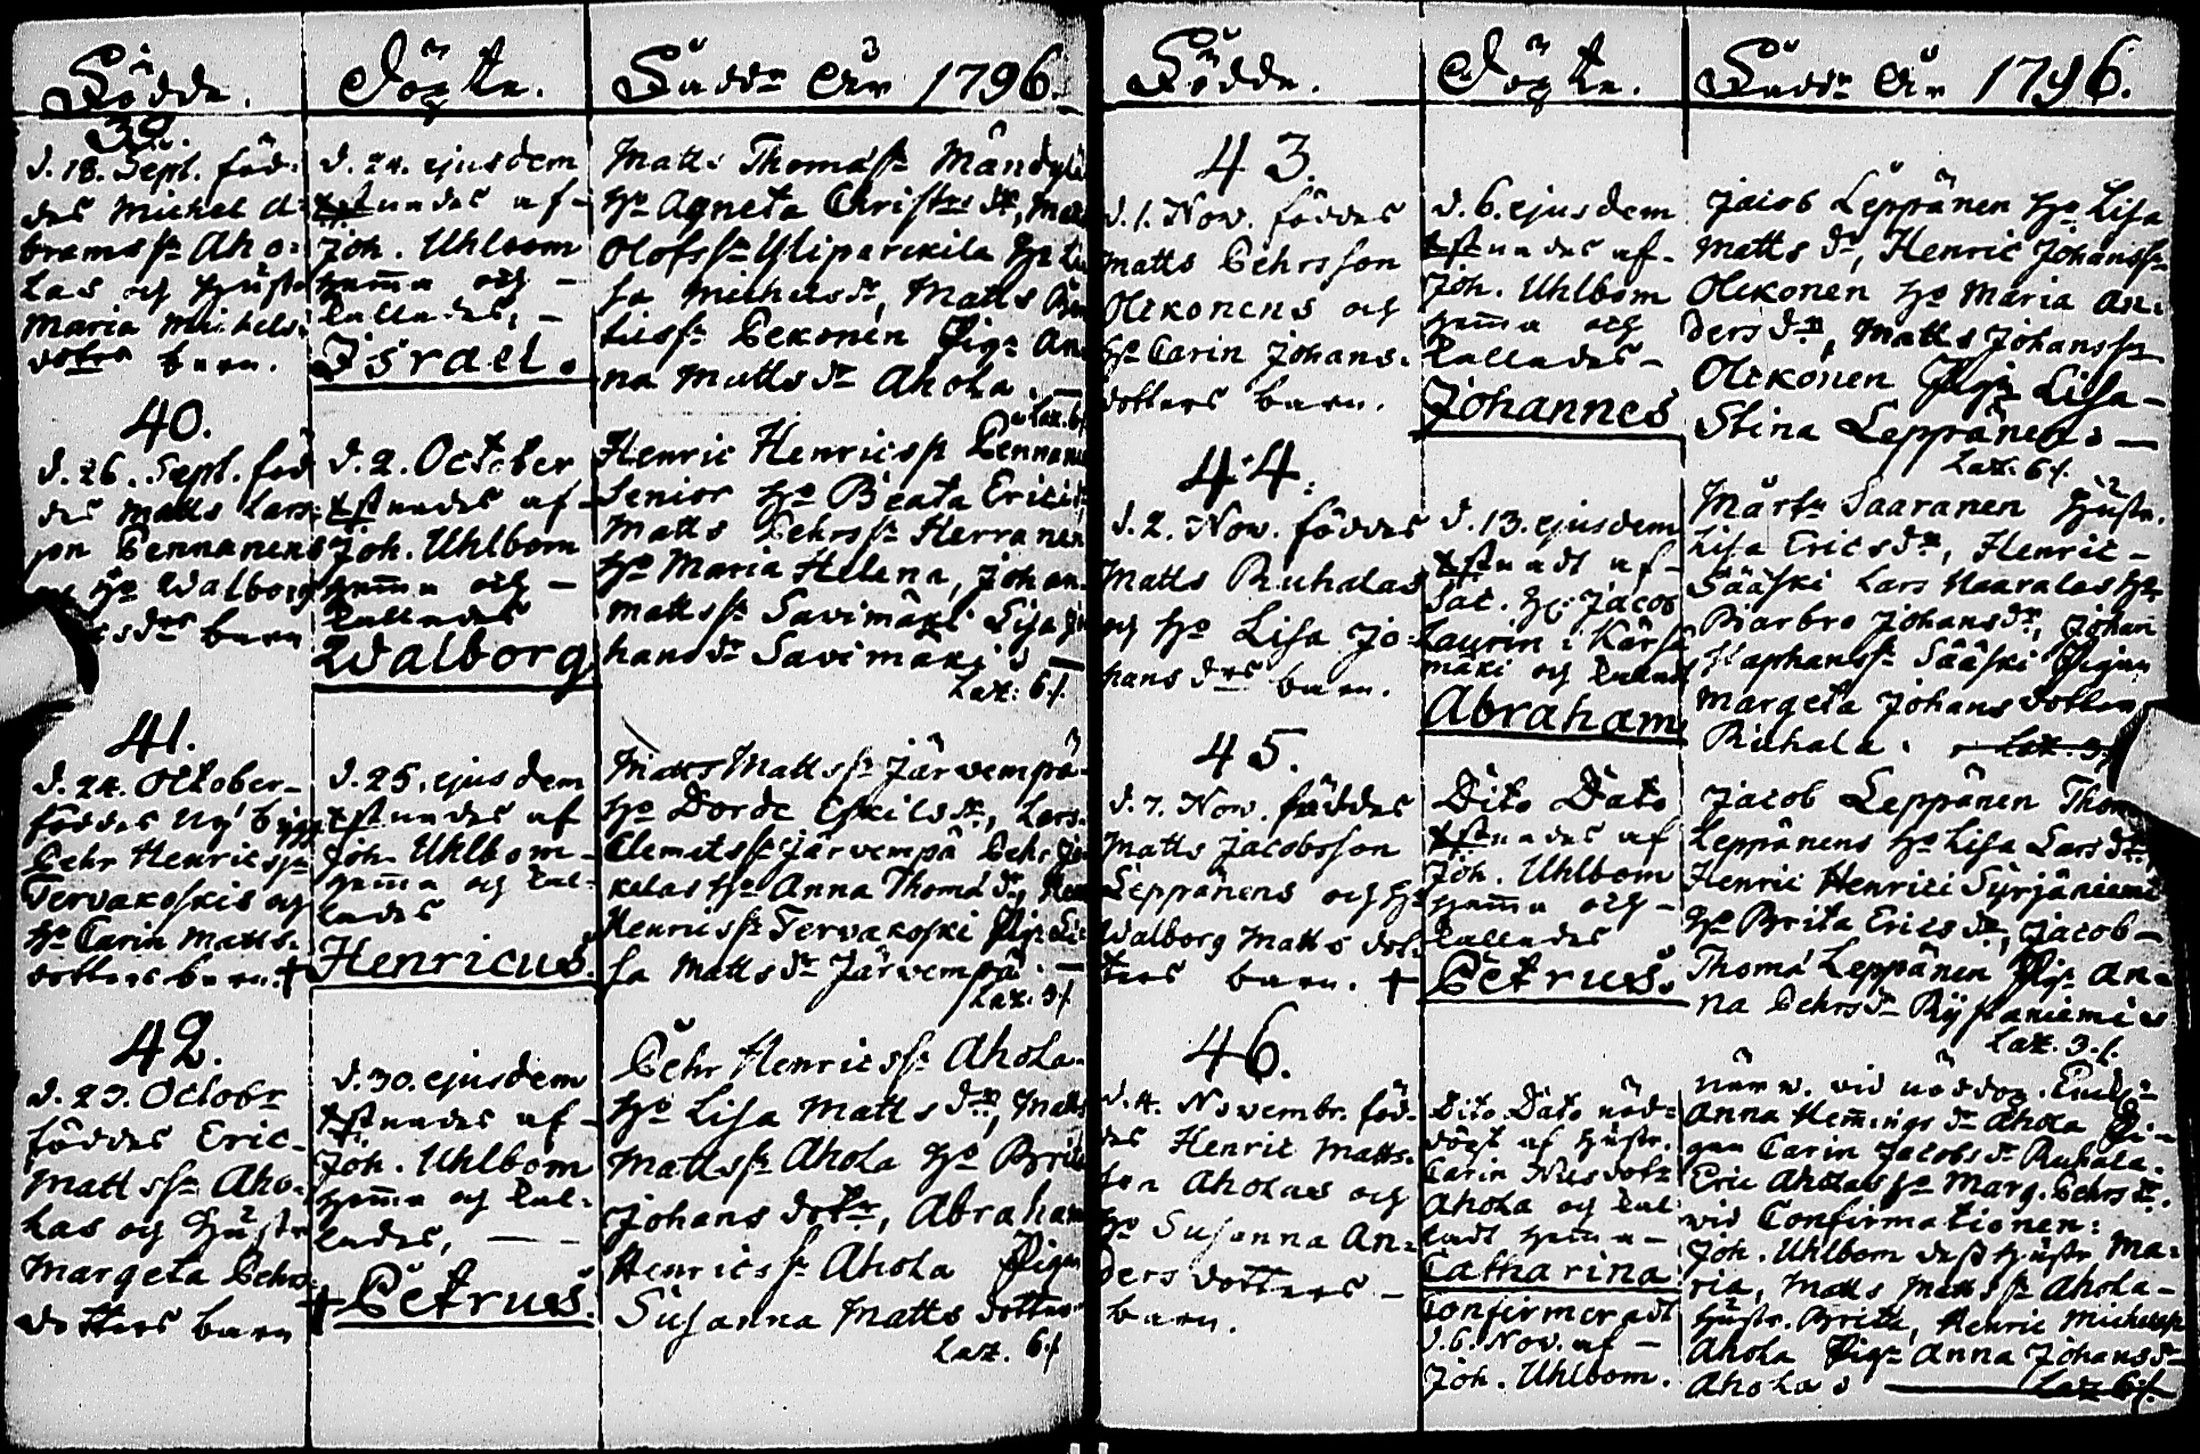 Födde.
Döpte.
Fadd: År 1796.
39.
d. 18. Sept. föd-
des Michel A-
bramsson Aho-
las och Hustr
Maria Michels-
dotrs barn.
d. 24. ejusdem
af-
Joh. Uhlbom
hemma och -
kallades, -
Israel.
Matts Thomæss: Mändylä
Ho Agneta Christersdr,
Olofss: Yliparckila Ho
sa Michelsdr, Matts
Pekonen Pig: An-
na Mattsdr Ahola. -
Lax. 6
40.
d. 26. Sept. föd
des Matts Lars-
son Pennanens
Ho Walborg
barn
d. 2. October
af-
Joh. Uhlbom
hemma och -
kallades
Walborg
Henric Henricss: Pennanen
Senior Ho Beata Ericid:
Matts Pehrss: Herranen
Ho Maria Helena, Johan
Mattss: Savimäki Lisa Jo
hansdr Savimäki. -
Lax: 6 f.
41.
d. 24. October -
föddes Nybygg
Pehr Henricss:
Tervakoskis och
Ho Carin Matts-
dotters barn. †
d. 25. ejusdem
af
Joh. Uhlbom -
hemma och kal-
lades
Henricus.
Matts Mattss: Järvempä
Ho Dorde Eskilsdr, Lars.
Clemetss: Järvempä Pehr
kelas Ho Anna Thomædr,
Henricss: Tervakoski Pig: Li-
sa Mattsdr Järvempä. -
Lax. 3 f.
42.
d. 23. Octobr
föddes Eric -
Mattss: Aho-
las och Hustr
Margeta Pehrs-
dotters barn
d. 30. ejusdem
af-
Joh. Uhlbom
hemma och kal-
lades, - -
† Petrus.
Pehr Henricss: Ahola
Ho Lisa Mattsdr, Matts
Mattss: Ahola Ho Brita
Johans dotr, Abraham
Henricss: Ahola Pigan
Susanna Matts dotter
Lax. 6 f
Födde.
Döpte.
Fadd: År 1796.
43.
d. 1. Nov. föddes
Matts Pehrsson
Olckonens och
Ho Carin Johans-
dotters barn.
d. 6. ejusdem
af-
Joh. Uhlbom
hemma och
kallades -
Johannes
Jacob Leppänen Ho Lisa
Mattsdr, Henric Johanss:
Olckonen Ho Maria An-
dersdr, Matts Johanss:
Olckonen Pig: Lisa -
Stina Leppänen. -
Lax: 6 f.
44.
d. 2. Nov. föddes
Matts Ruhalas
och Ho Lisa Jo-
hansdrs barn.
d. 13. ejusdem
af-
Sac. Hr: Jacob
Laurin i Kärsä
mäki och kallad
Abraham
Mårt: Saaranen Hustr.
Lisa Ericsdr, Henric -
Sääski Lars Haaralas Ho
Barbro Johansdr, Johan
Staphanss: Sääski Pigan
Margeta Johans dotter
Ruhala. Lax. 3
45.
d. 7. Nov. föddes
Matts Jacobsson
Leppänens och Ho
Walborg Matts dot-
ters barn. †
Dito Dato
af
Joh. Uhlbom
hemma och -
kallades
Petrus.
Jacob Leppänen Thom
Leppänens Ho Lisa Larsdr.
Henric Henrici Syrjäniemi
Ho Brita Ericsdr, Jacob -
Thomæ Leppänen Pig: An-
na Pehrsdr Rystäniemi
Lax. 3. f.
46.
d. 4. Novembr. föd-
des Henric Matts-
son Aholas och
Ho Susanna An-
ders dotters -
barn.
Dito Dato nöd-
döpt af Hustr.
Carin Nilsdotr
Ahola och kal-
ladt hemma -
Catharina
Confirmeradt
d. 6. Nov. af -
Joh. Uhlbom.
närv. vid nöddop.
Anna Hemmingsdr Ahola Pi-
gan Carin Jacobsdr Ruhala.
Eric Aholas Ho Marg. Pehrsdr.
vid Confirmationen:
Joh. Uhlbom dess Hustr Ma-
ria, Matts Mattss: Ahola -
Hustr. Britta, Henric Michelss:
Ahola Pig: Anna Johansdr
Ahola. Lax 6 f.